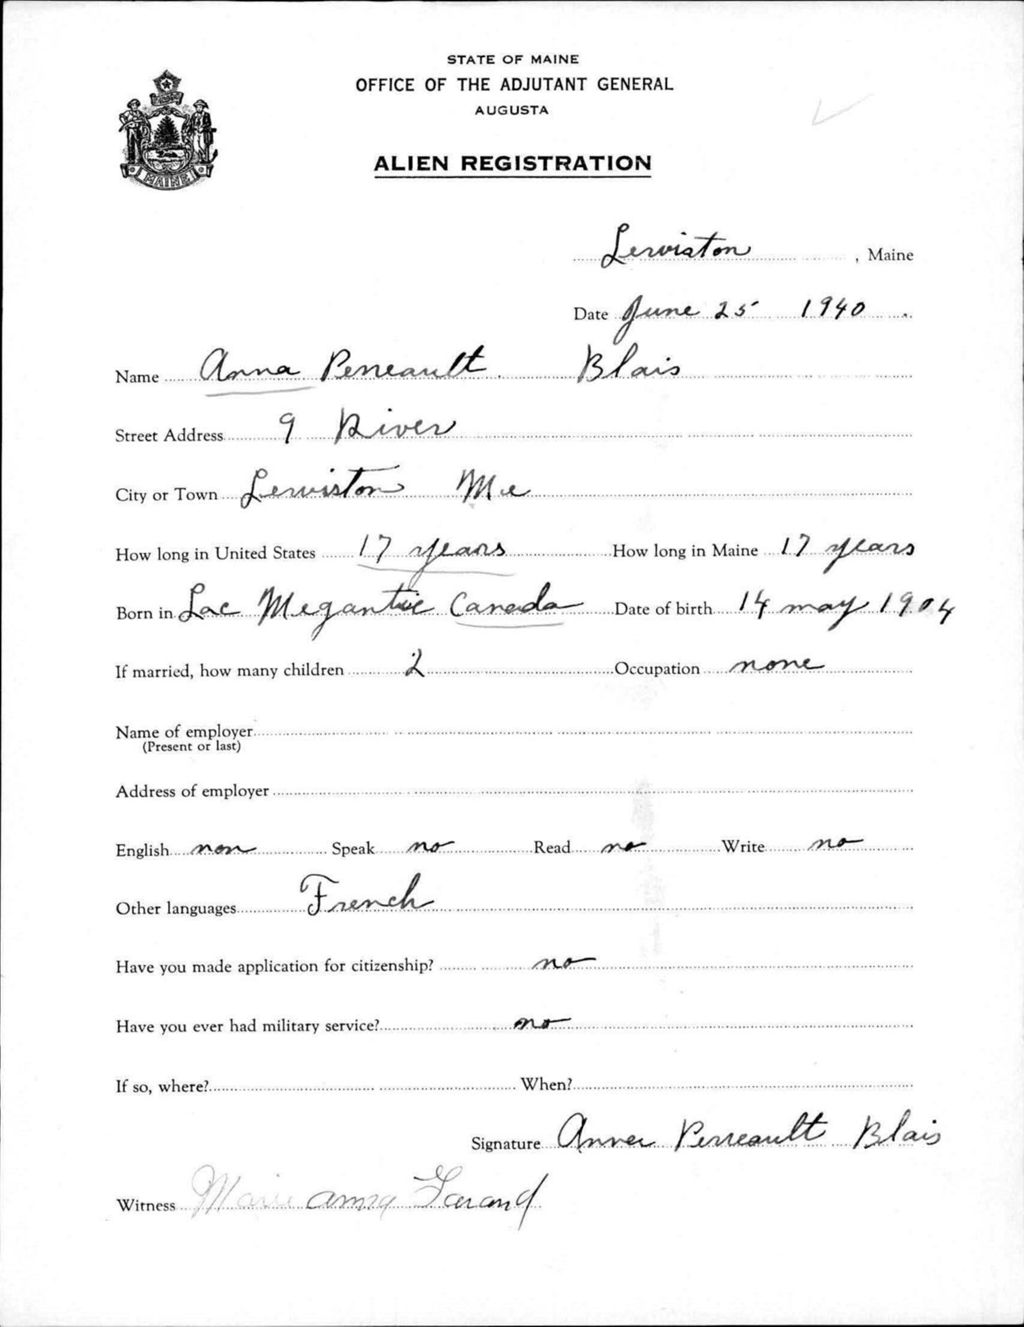 STATE OF MAINE
OFFICE OF THE ADJUTANT GENERAL
AUGUSTA
ALIEN REGISTRATION
MAINE
Lewiston, Maine
Date June 25 1940
Name Anna Perreault Blais
Street Address 9 River
City or Town Lewiston Me
How long in United States 17 years How long in Maine 17 years
Born in Lac Megantic Canada Date of birth 14 may 1904
If married, how many children 2 Occupation none
Name of employer
(Present or last)
Address of employer
English non Speak no Read no Write no
Other languages French
Have you made application for citizenship? no
Have you ever had military service? no
If so, where? When?
Signature Anna Perreault Blais
Witness Marie anna Garand